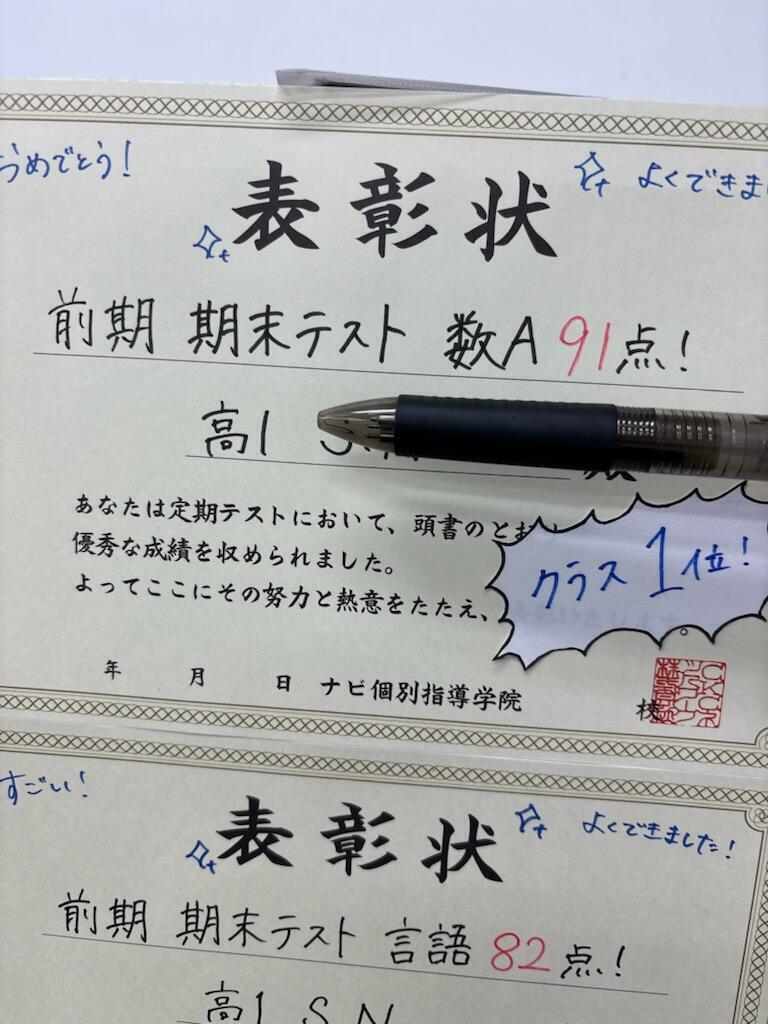 おめでとう!
よくできま
表彰状
前期 期末テスト 数A 91点!
高1 S.N
あなたは定期テストにおいて、頭書のとおり
優秀な成績を収められました。
よってここにその努力と熱意をたたえ、
クラス1位!
年 月 日 ナビ個別指導学院 校
すごい!
よくできました!
表彰状
前期 期末テスト 言語 82点!
高1 S.N